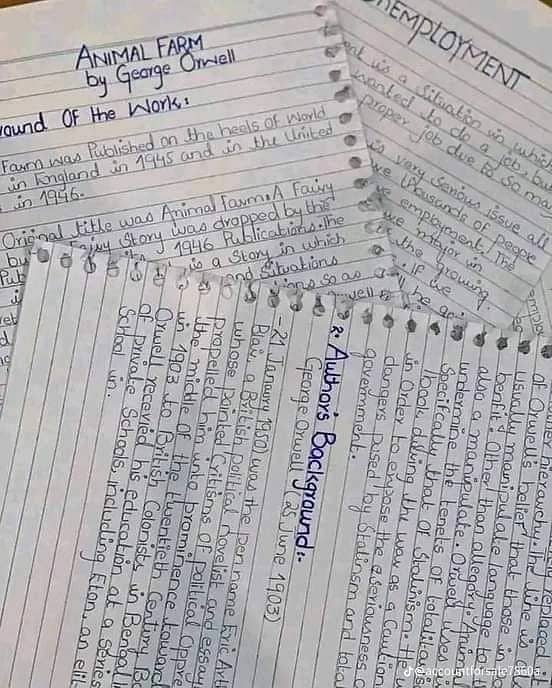 ANIMAL FARM
by George Orwell
Of the Work:
Farm was Published on the heels of World
in England in 1945 and in the United
in 1946.
Original title was Animal Farm: A Fairy
Story was dropped by the
1946 Publications. The
is a Story in which
and Situations
so as
EMPLOYMENT
is a Situation in which
wanted to do a job, but
proper job due to so ma
is very serious issue all
thousands of people
employment. The
major in
the growing
. if we
be
2. Author's Background:-
George Orwell (25 June 1903)
-21 January 1950) was the penname Eric Art
Blair, a British political novelist and essay
whose Pointed Critisms of political oppre
propelled him into prominence toward
the middle of the twentieth Century Bo
in 1903 to British Colonist in Bengal
Orwell received his education at a series
of private Schools, including Eton, an elit
School in.
of Orwell's belief that those in
usually manipulate language to
benifit. Other than allegory,
also a manipulate. Orwell
undermine the tenets of totalita
Specifically that of Stalinism. He
book during the war as a Caution
in Order to expose the eseriousness
dangers posed by Stalinism and total
government.
@accountforsale7860a